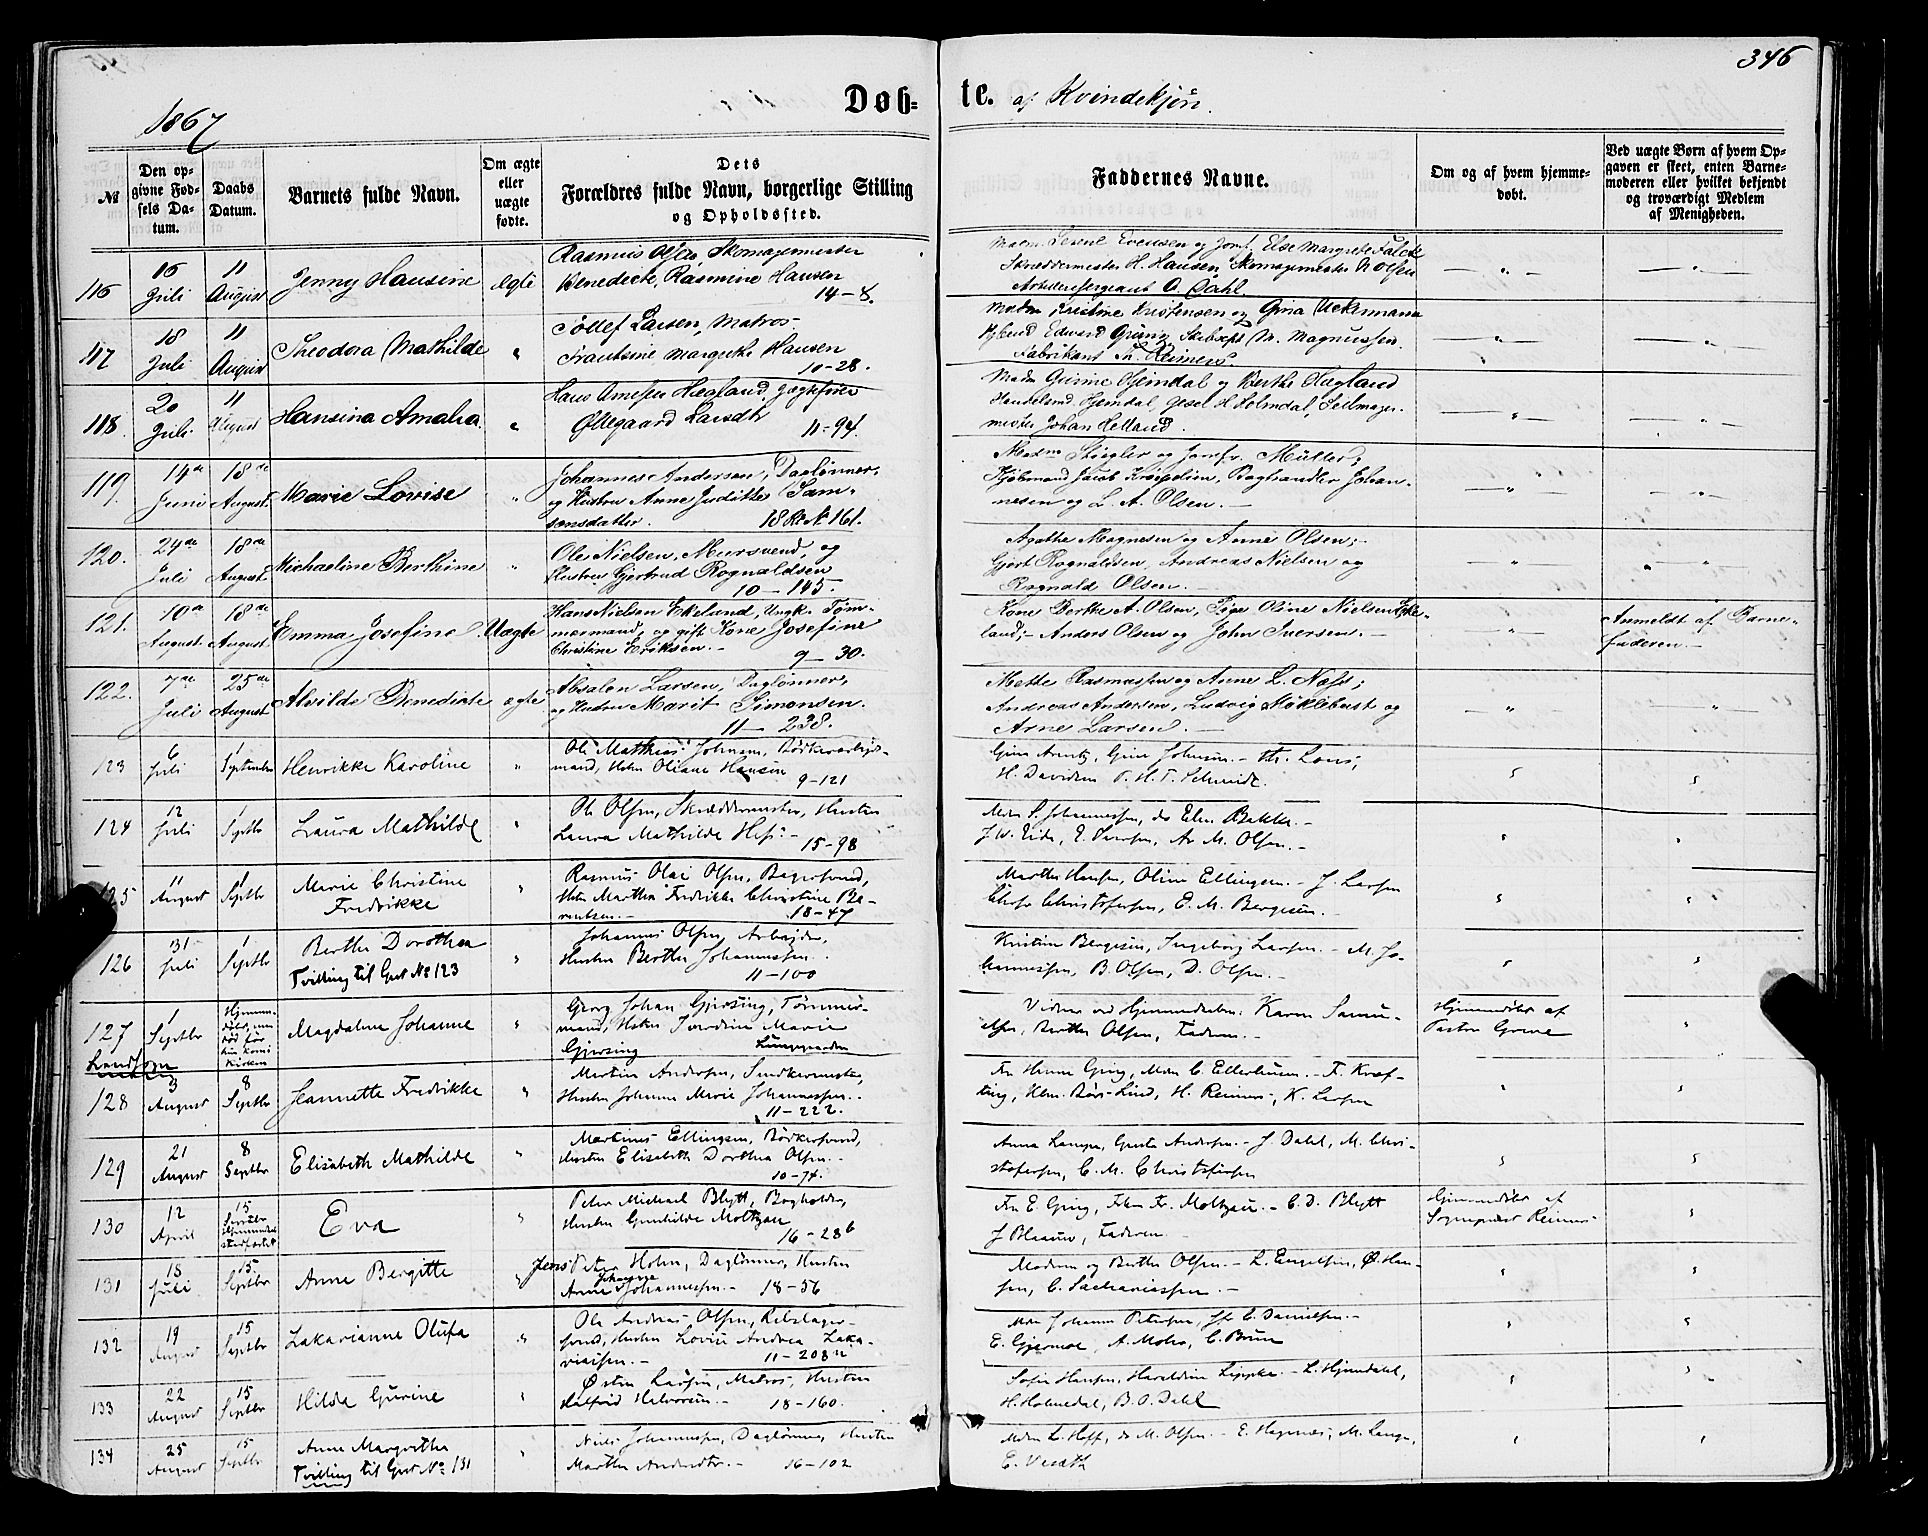 346
1867
Døb-
te. af Kvindekjøn.
№
Den op-
givne Fød-
sels Da-
tum.
Daabs
Datum.
Barnets fulde Navn.
Om ægte
eller
uægte
fødte.
Dets
Forældres fulde Navn, borgerlige Stilling
og Opholdssted.
Faddernes Navne.
Om og af hvem hjemme-
døbt.
Ved uægte Børn af hvem Op-
gaven er skeet, enten Barne-
moderen eller hvilket bekjendt
og troværdigt Medlem
af Menigheden.
116
16 Juli
11 August
Jenny Hansine
Ægte
Rasmus Olsen, Skomagermester
Benedicte, Rasmine Hansen
14-8.
Skræddermester H. Hansen, Skomagermester
Artillerisergeant O. Dahl.
117
18 Juli
11 August
Theodora Mathilde
"
Tollef Larsen, Matros-
Margrethe Hansen
10-28.
Edvard Grüng, M. Magnussen.
Fabrikant Th. Reimers.
118.
20 Juli
11 August
Hansina Amalia
"
Hægland, Jægtefører
Øllegaard Larsdtr 11-94.
Madm Gurine Hjemdal og Berthe Hægland
Handelsmd. Hjemdal, Gesel H. Holmdal, Seilmager-
mester Johan Helland.
119.
14de Juni
18de August.
Marie Lovise
"
Johannes Andersen, Daglønner,
og Hustru Anne Judithe Sam-
sonsdatter. 18 Rd № 161.
Madm Stiegler og Jomfr. Müller;
Kjøbmand Jacob Kroepelien, Boghandler Johan-
nesen og L. A. Olsen. —
120.
24de Juli
18de August.
Michaeline Berthine
"
Ole Nielsen, Muursvend, og
Hustru Gjertrud Rognaldsen
10 — 145.
Agathe Magnesen og Anne Olsen;
Gjert Rognaldsen, Andreas Nielsen og
Rognald Olsen. —
121.
10de August.
18de August.
Emma Josefine.
Uægte
Hans Nielsen Ekeland, Ungk. Tøm-
mermand, og gift Kone Josefine
Christine Eriksen. — 9 — 30.
Kone Berthe A. Olsen, Pige Oline Nielsen Eke-
land; — Anders Olsen og John Iversen. —
Anmeldt af Barne-
faderen. —
122.
7de Juli
25de August
Alvilde Benedicte
ægte
Absalon Larsen, Daglønner,
og Hustru Marit Simonsen.
11 — 238.
Mette Rasmussen og Anne L. Næss;
Andreas Andersen, Ludvig Møklebust og
Arne Larsen. —
123
6 Juli
1 September
Henrikke Karoline
"
Ole Mathias Johnsen, Bødkerarbeids-
mand, Hstru Oliane Hansen
9-121
Gina Arntz, Gine Johnsen. — Th. Lous,
H. Davidsen P. H. T. Schmidt.
124
12 Juli
1 Septbr
Laura Mathilde
"
Ole Olsen, Skræddermester, Hustru
Laura Mathilde Hess. — 15-98
Mdm S. Johannessen, do Elen Bakke. —
J. W. Eide, M. Olsen. —
125
11 August
1 Septbr
Marie Christine
Fredrikke
"
Rasmus Olai Olsen, Bagersvend,
Hstru Marthea Fredrikke Christine Be-
rentsen. — 18-47
Marthe Hansen, Oline Ellingsen. — J. Larsen
Christofersen, E. M. Bergesen. —
126
31 Juli
1 Septbr
Berthe Dorothea
Tvilling til Gut No 123
"
Johannes Olsen, Arbeider,
Hustru Berthe Johannessen. —
11-100
Kristine Bergesen, Ingeborg Larsen. — M. Jo-
hannessen, B. Olsen, D. Olsen. —
127
Landsogn
1 Septbr
Hjemme-
døbt, men
død før
hun kom i
Kirken
Magdalene Johanne
"
Georg Johan Gjersing, Tømmer-
mand, Hstru Marie
Gjersing
Vidner ved Hjemmedaaben: Karen Samu-
elsen, Berthe Olsen, Faderen. —
Hjemmedøbt af
Pastor Greve
128
3 August
8 Septbr
Jeannette Fredrikke
"
Martin Andersen,
Hustru Johanne Marie Johannessen. —
11-222.
ting, Lind, H. Reimers, K. Larsen
129
21 August
8 Septbr
Elisabeth Mathilde
"
Martinus Ellingsen, Bødkersvend,
Hustru Elisabeth Dorthea Olsen. —
10-74.
J. Dahl, M. Chri-
stofersen, C. M. Christofersen
130
12 April
15 Septbr
Eva
"
Peter Michael Blytt, Bogholder,
Hustru Gunhilde Moltzau
16-286
Moltzau. — C. D. Blytt
J Blaauw, Faderen. —
Hjemmedøbt af
Sognepræst Reimers
131
18 Juli
15 Septbr
Anne Bergitte
"
Jens Peter Holm, Daglønner, Hustru
Anne Johanne Johannessen. — 18-56
Moderen og Berthe Olsen. — L. Engelsen, Ø. Han-
sen, C. Sachariassen. —
132
19 August
15 Septbr
Zakarianne Olufa
"
Ole Andreas Olsen, Rebslager-
svend, Hustru Lovise Andrea Zaka-
riassen. — 11-208
Mdm Johanne Petersen, C. Danielsen. —
E. Gjermoe, A. Mohr, C. Bruun
133
22 August
15 Septbr
Hilda Gurine
"
Østen Larsen, Matros, Hustru
Halvorsen. — 18-160.
Sofie Hansen, Haraldine Lippke. — L. Hjemdahl,
H. Holmedal, B. O. Dahl
134
25 August
15 Septbr
Anne Margrethe
Tvilling til Gut No 131
"
Niels Johannessen, Daglønner, Hustru
Marthe Andersdtr. — 16-102
Mdm L. Hoff, do M. Olsen. — E. Hagenæs, M. Lange,